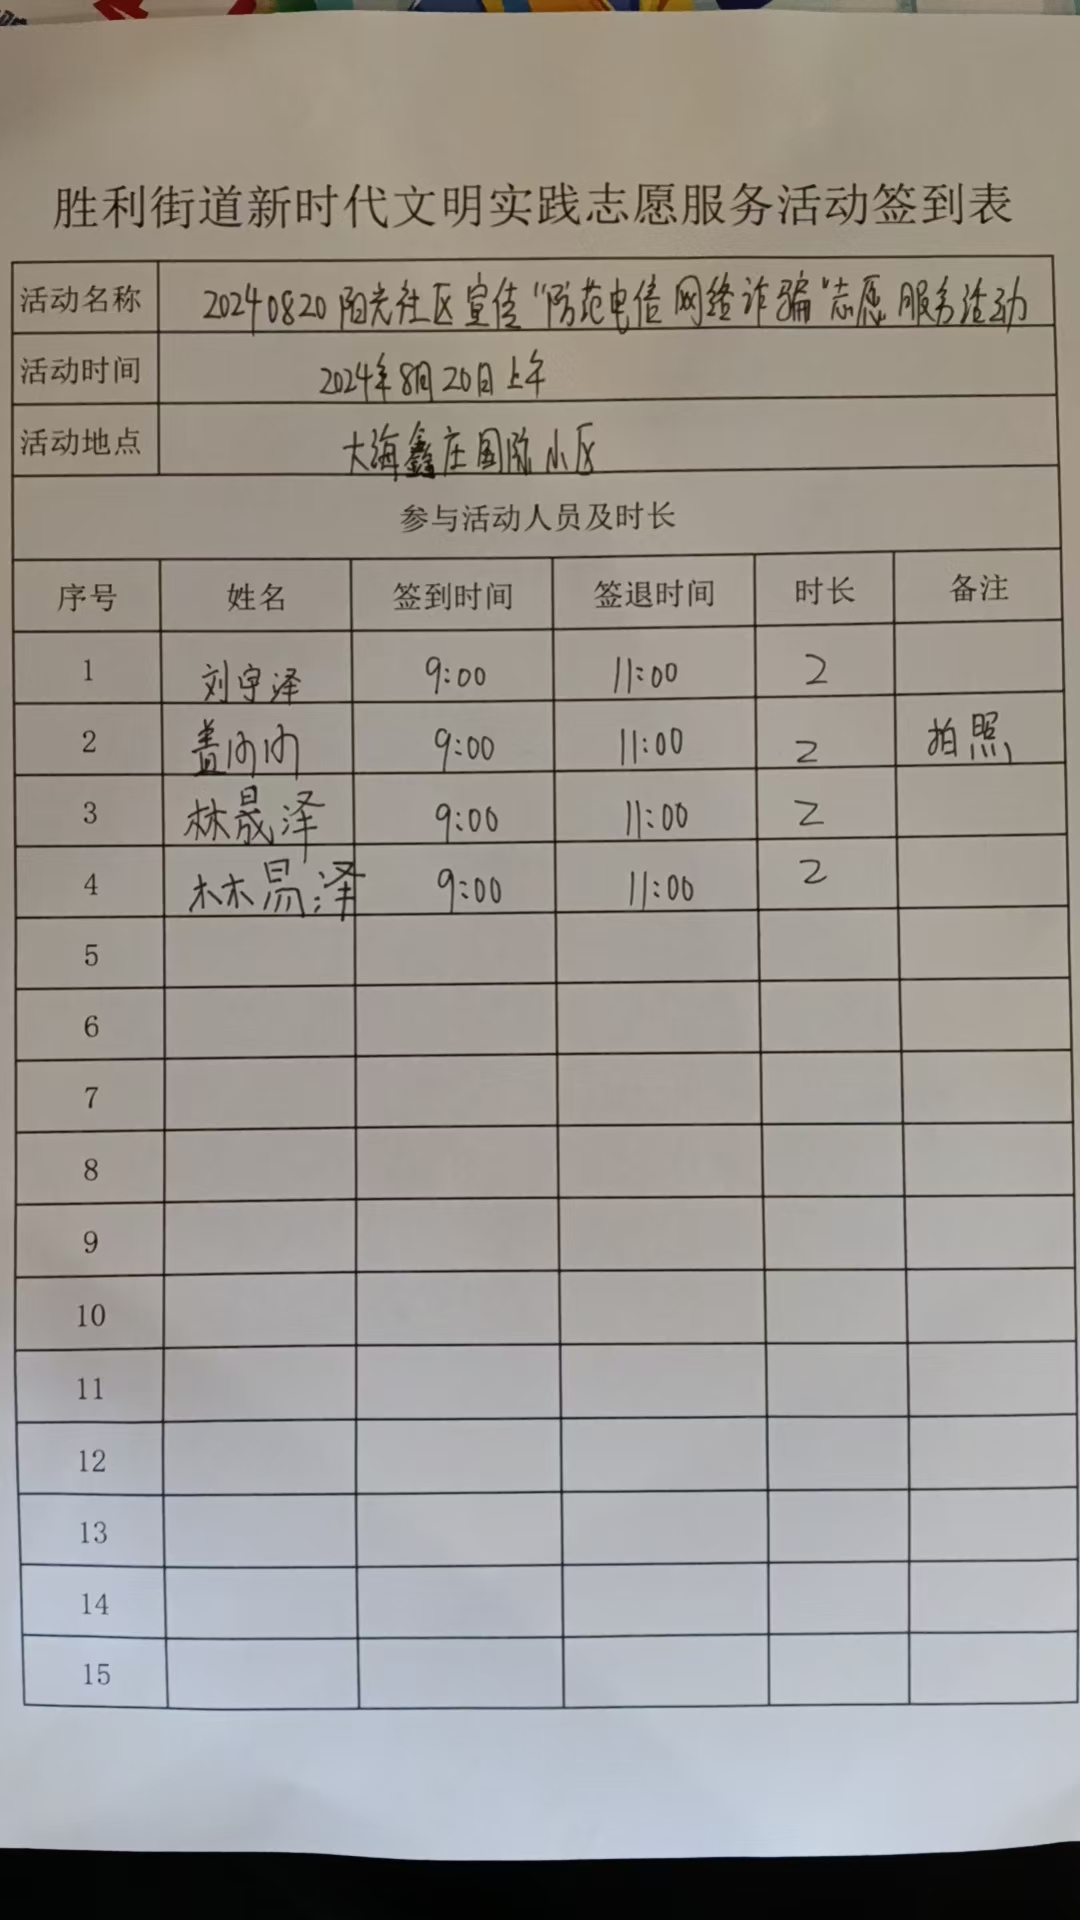 胜利街道新时代文明实践志愿服务活动签到表
活动名称 20240820阳光社区宣传“防范电信网络诈骗”志愿服务活动
活动时间 2024年8月20日上午
活动地点 大海鑫庄国际小区
参与活动人员及时长
序号 姓名 签到时间 签退时间 时长 备注
1 刘宇泽 9:00 11:00 2
2 盖内内 9:00 11:00 2 拍照
3 林晟泽 9:00 11:00 2
4 林易泽 9:00 11:00 2
5
6
7
8
9
10
11
12
13
14
15